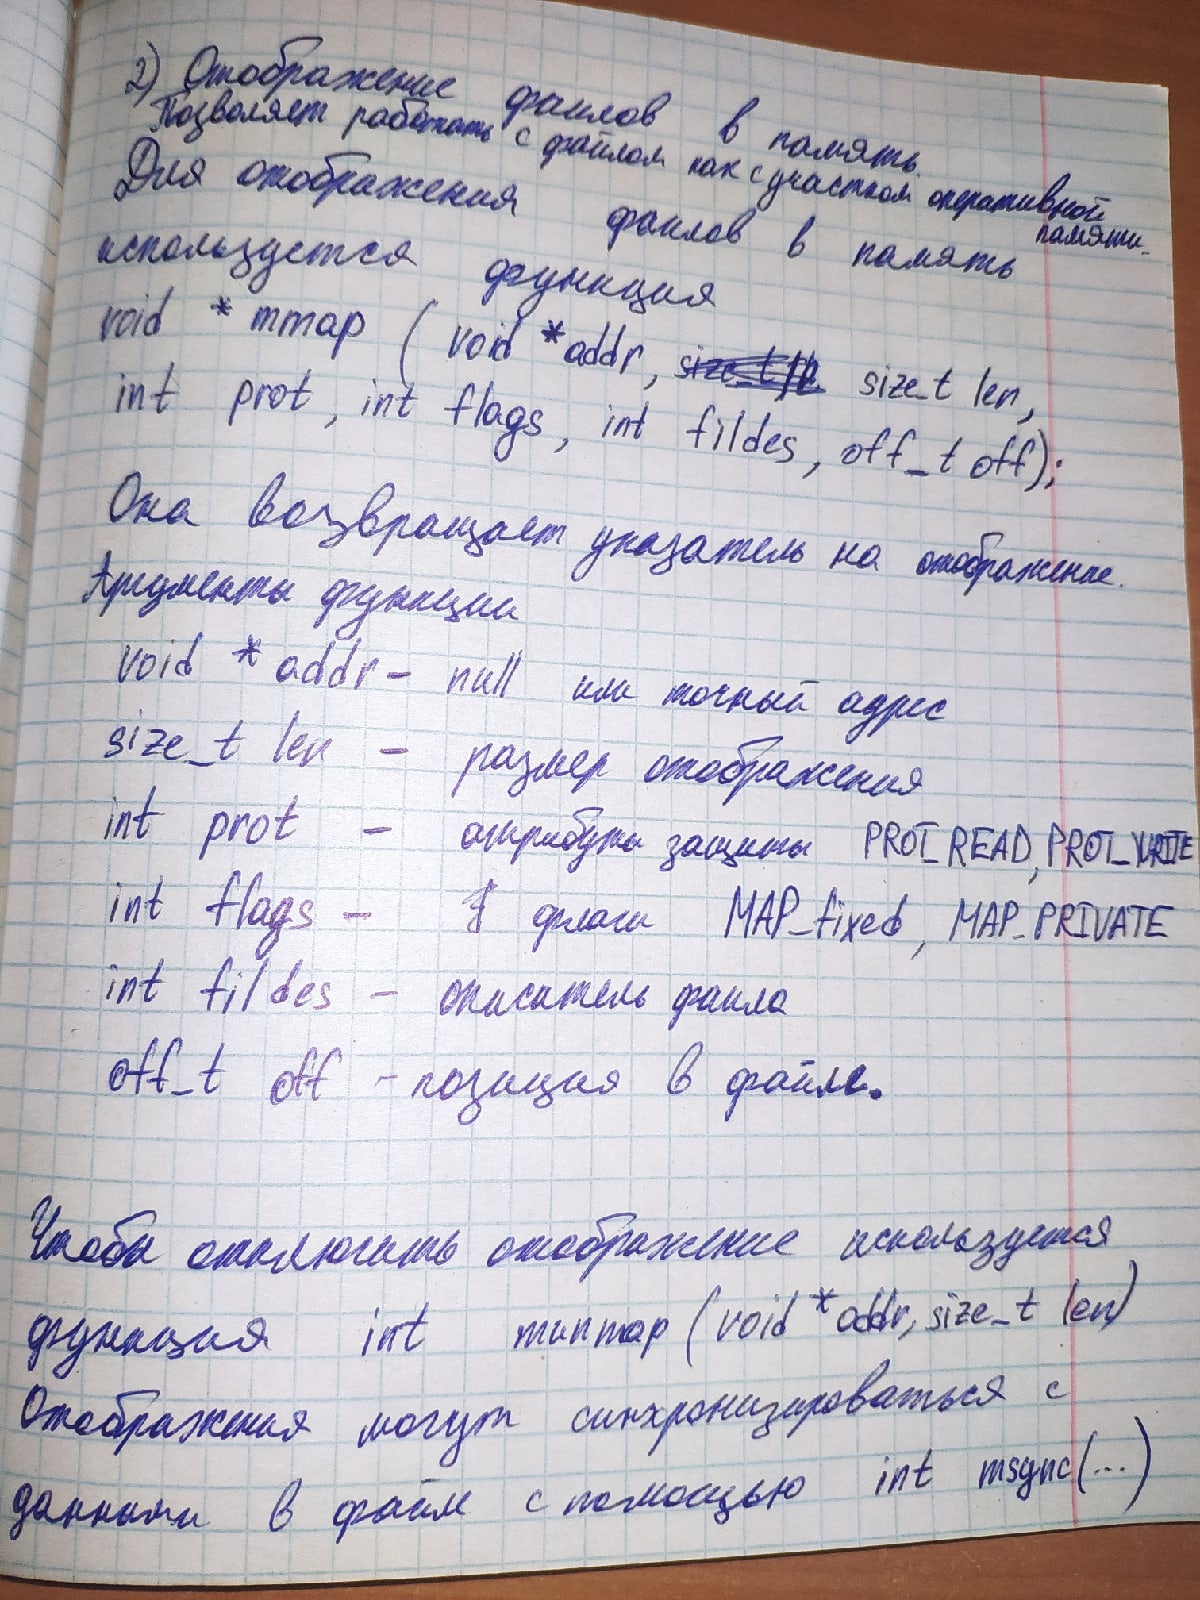 2) Отображение файлов в память.
Позволяет работать с файлом как с участком оперативной памяти.
Для отображения файлов в память
используется функция
void * mmap ( void *addr, size_t len,
int prot, int flags, int fildes, off_t off);
Она возвращает указатель на отображение.
Аргументы функции
void * addr - null или точный адрес
size_t len - размер отображения
int prot - атрибуты защиты PROT_READ, PROT_WRITE
int flags - флаги MAP_fixed, MAP_PRIVATE
int fildes - описатель файла
off_t off - позиция в файле.
Чтобы отключить отображение используется
функция int munmap (void *addr, size_t len)
Отображения могут синхронизироваться с
данными в файле с помощью int msync(...)